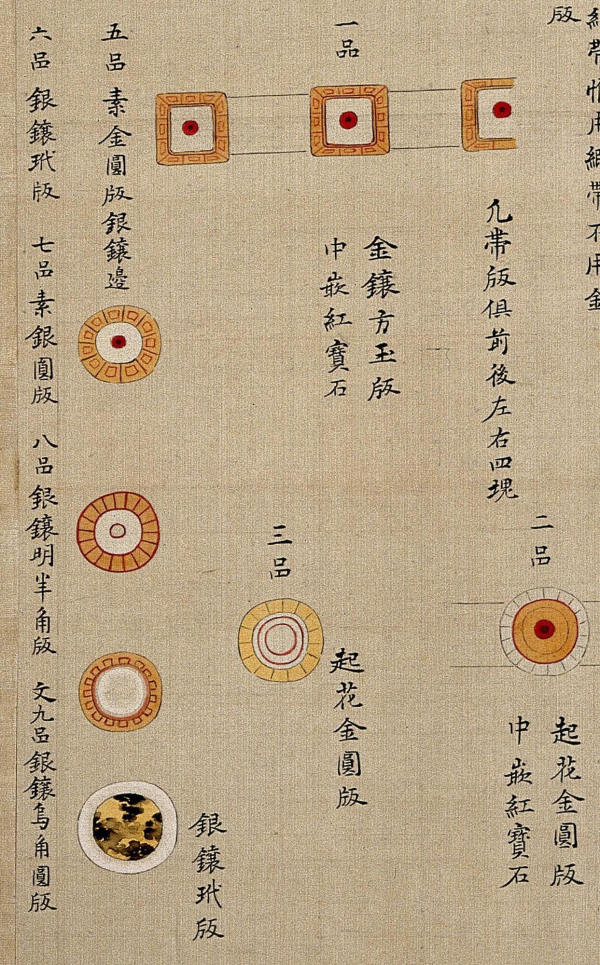 版
凢帶版俱前後左右四塊
二品
起花金圓版
中嵌紅寶石
一品
金鑲方玉版
中嵌紅寶石
三品
起花金圓版
銀鑲玳版
五品素金圓版銀鑲邊
六品銀鑲玳版
七品素銀圓版
八品銀鑲明羊角版
文九品銀鑲烏角圓版